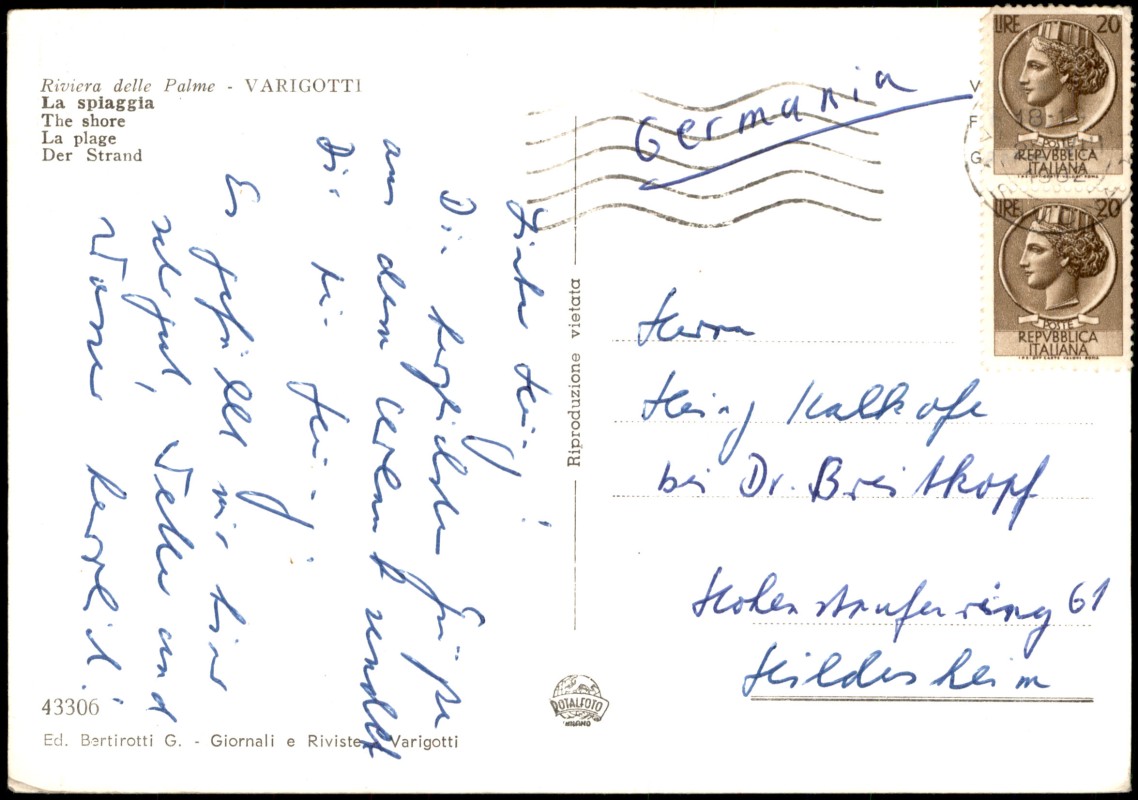 Riviera delle Palme - VARIGOTTI
La spiaggia
The shore
La plage
Der Strand
Die herzlichsten Grüße
aus dem Urlaub sendet
Dir
Es gefällt mir hier
sehr gut, Wetter und
Wasser herrlich!
43306
Ed. Bertirotti G. - Giornali e Riviste Varigotti
Riproduzione vietata
ROTALFOTO
MILANO
Germania
LIRE 20
POSTE
REPVBBLICA
ITALIANA
LIRE 20
POSTE
REPVBBLICA
ITALIANA
Herrn
Heinz Kalkofe
bei Dr. Breitkopf
Hohenstaufenring 61
Hildesheim